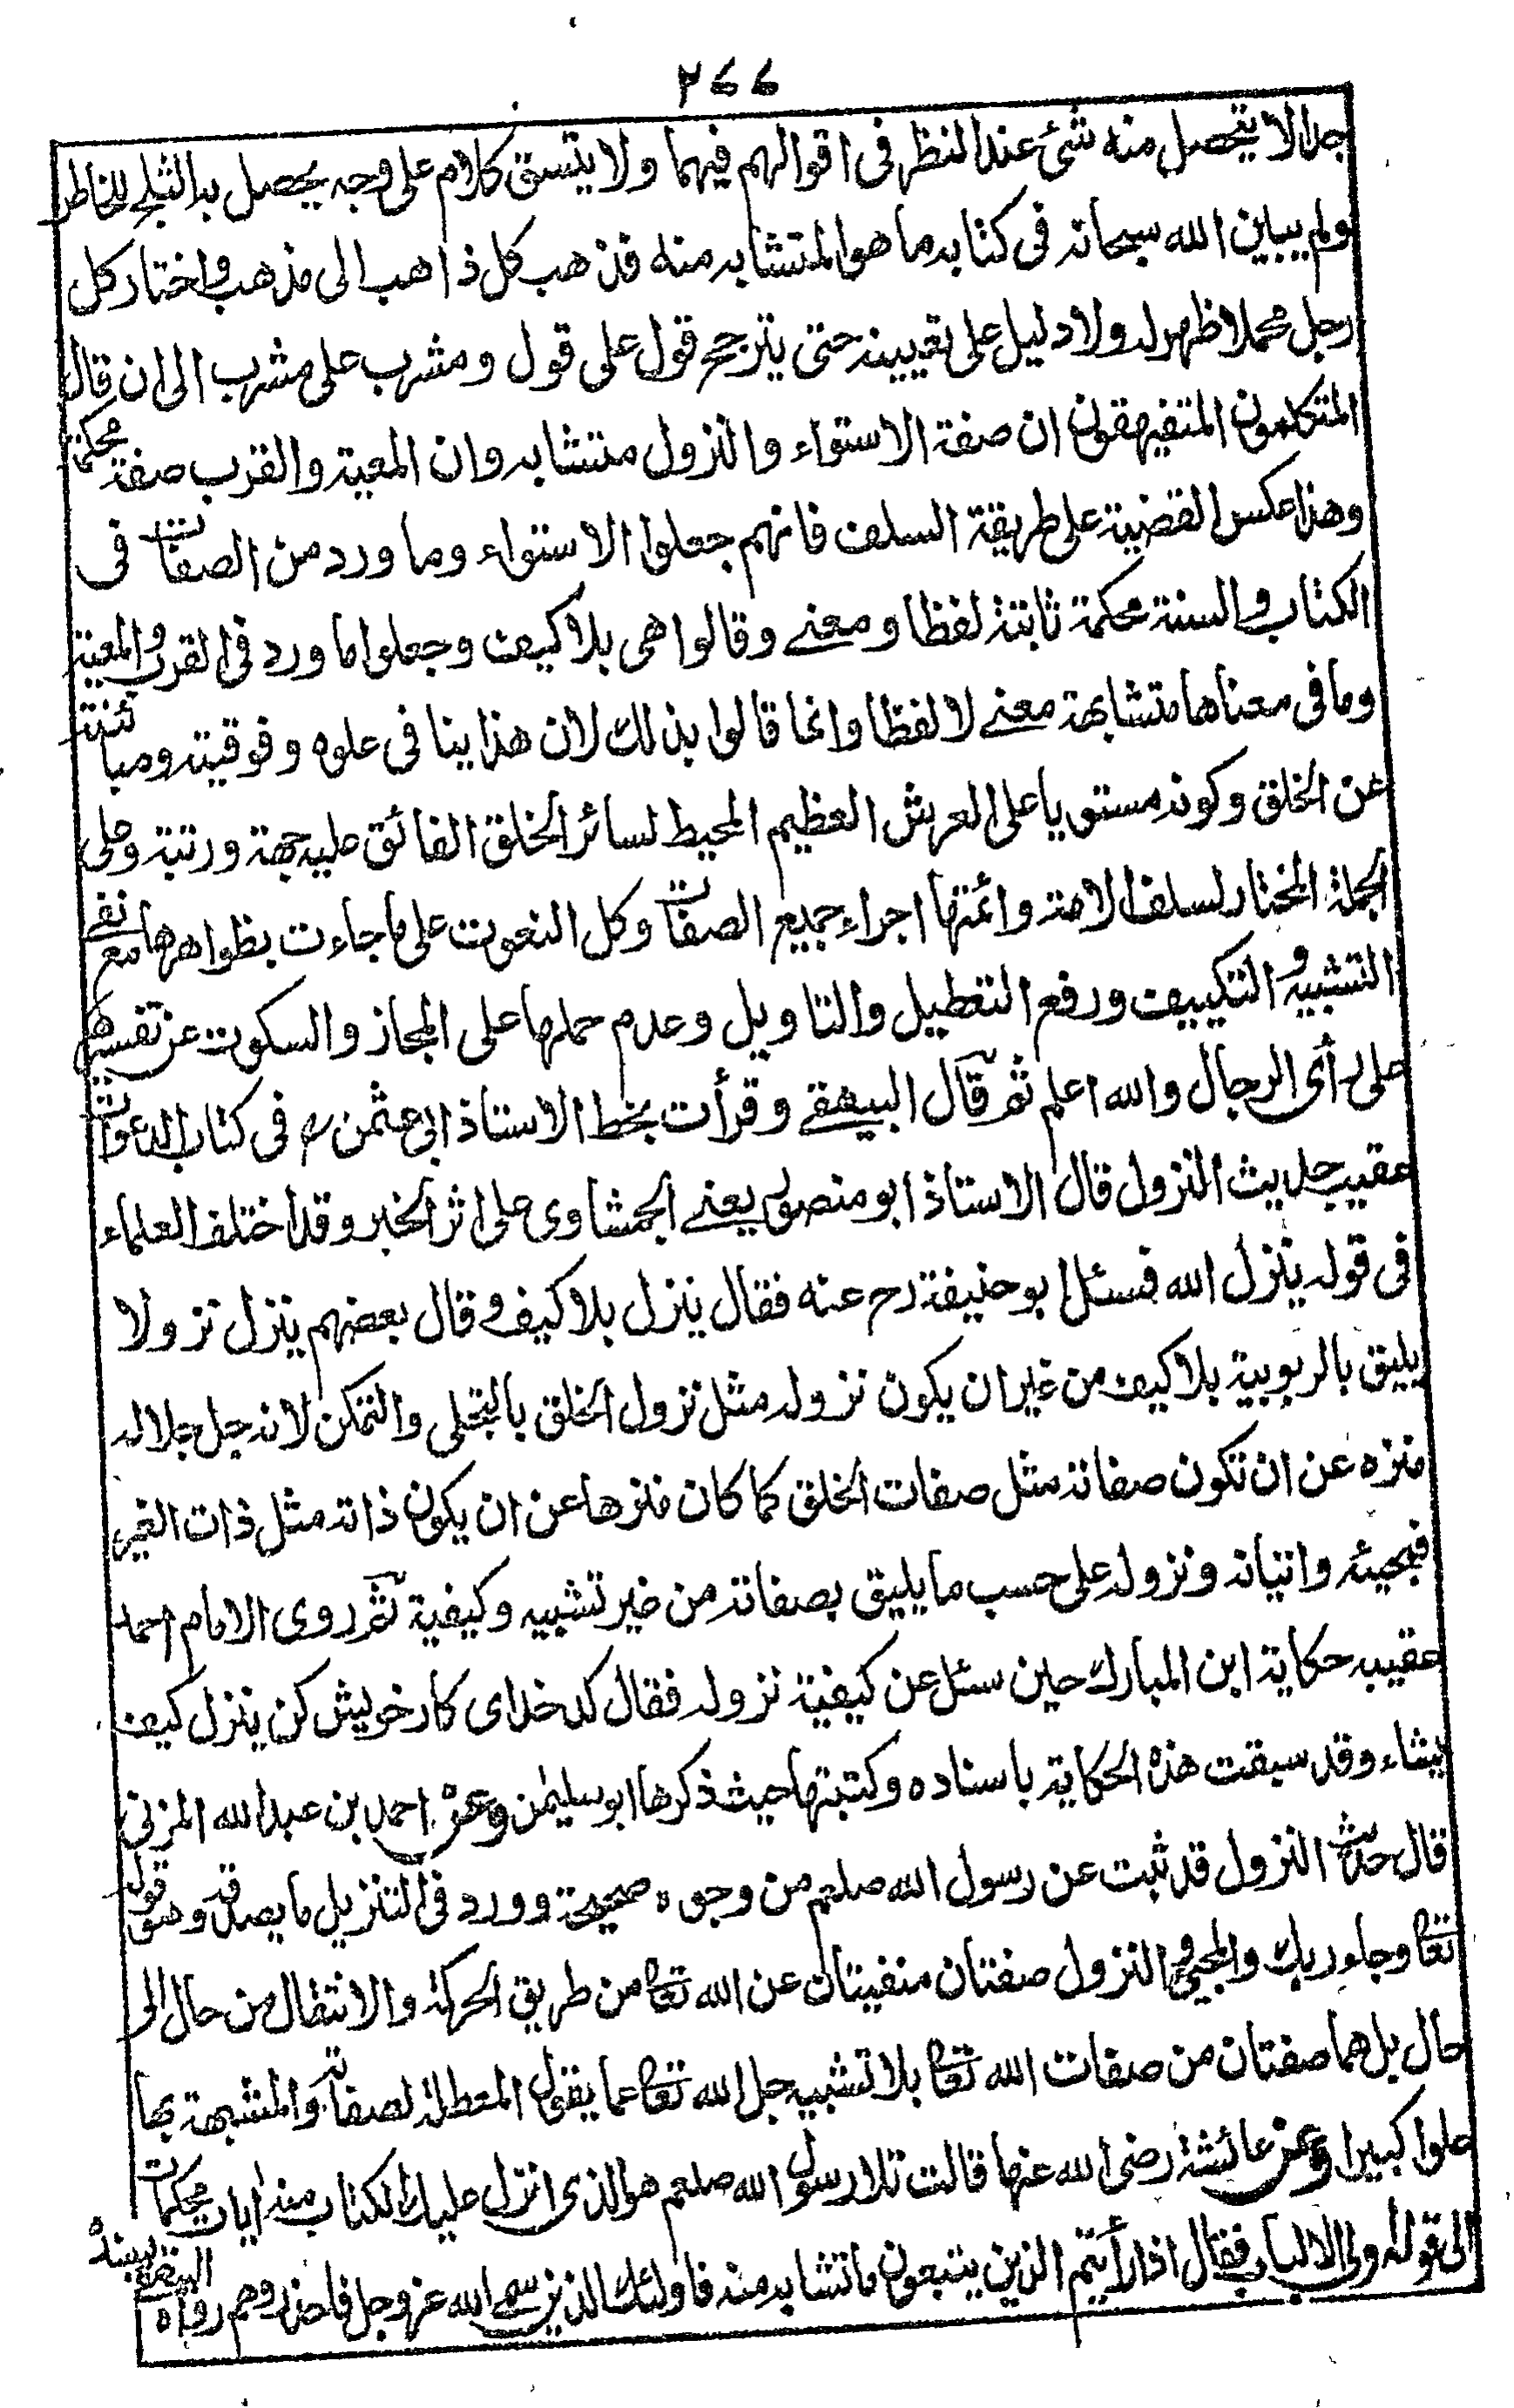 ۲۶۶
جدا لا يتحصل منه شئ عند النظر فى اقوالهم فيهما ولا يتسق كلام على وجه يحصل به الثلج للخاطر
ولم يبين الله سبحانه فى كتابه ما هو المتشابه منه فذهب كل ذاهب الى مذهب واختار كل
رجل محملا ظهر له ولا دليل على تعيينه حتى يترجح قول على قول ومشرب على مشرب الى ان قال
المتكلمون المتفيهقون ان صفة الاستواء والنزول متشابه وان المعية والقرب صفة محكمة
وهذا عكس القضية على طريقة السلف فانهم جعلوا الاستواء وما ورد من الصفات فى
الكتاب والسنة محكمة ثابتة لفظا ومعنے وقالوا هى بلا كيف وجعلوا ما ورد فى القرب والمعية
وما فى معناها متشابهة معنے لا لفظا وانما قالوا بذلك لان هذا ينافى علوه وفوقيته ومبائنته
عن الخلق وكونه مستويا على العرش العظيم المحيط لسائر الخلق الفائق عليه جهة ورتبة وعلى
الجملة المختار لسلف الامة وائمتها اجراء جميع الصفات وكل النعوت على ما جاءت بظواهرها مع نفے
التشبيه والتكييف ورفع التعطيل والتاويل وعدم حملها على المجاز والسكوت عن تفسيرها
على رأى الرجال والله اعلم ثم قال البيهقے وقرأت بخط الاستاذ ابى عثمن رح فى كتاب الدعوات
عقيب حديث النزول قال الاستاذ ابو منصور يعنے الحمشاوى على اثر الخبر وقد اختلف العلماء
فى قوله ينزل الله فسئل ابو حنيفة رح عنه فقال ينزل بلا كيف وقال بعضهم ينزل نزولا
يليق بالربوبية بلا كيف من غير ان يكون نزوله مثل نزول الخلق بالتجلى والتمكن لانه جل جلاله
منزه عن ان تكون صفاته مثل صفات الخلق كما كان منزها عن ان يكون ذاته مثل ذات الغير
فمجيئه واتيانه ونزوله على حسب ما يليق بصفاته من غير تشبيه وكيفية ثم روى الامام احمد
عقيب حكاية ابن المبارك حين سئل عن كيفية نزوله فقال كدخداى كار خويش كن ينزل كيف
يشاء وقد سبقت هذه الحكاية باسناده وكتبتها حيث ذكرها ابو سليمن وعن احمد بن عبد الله المزنى
قال حديث النزول قد ثبت عن رسول الله صلعم من وجوه صحيحة وورد فى التنزيل ما يصدقه وهو قوله
تعا وجاء ربك والمجئ والنزول صفتان منفيتان عن الله تعا من طريق الحركة والانتقال من حال الى
حال بل هما صفتان من صفات الله تعا بلا تشبيه جل الله تعا عما يقول المعطلة لصفاته والمشبهة بها
علوا كبيرا وعن عائشة رضى الله عنها قالت تلا رسول الله صلعم هو الذى انزل عليك الكتاب منه ايات محكمات
الى قوله اولى الالباب فقال اذا رأيتم الذين يتبعون ما تشابه منه فاولئك الذين سمے الله عز وجل فاحذروهم رواه البيهقے بسنده